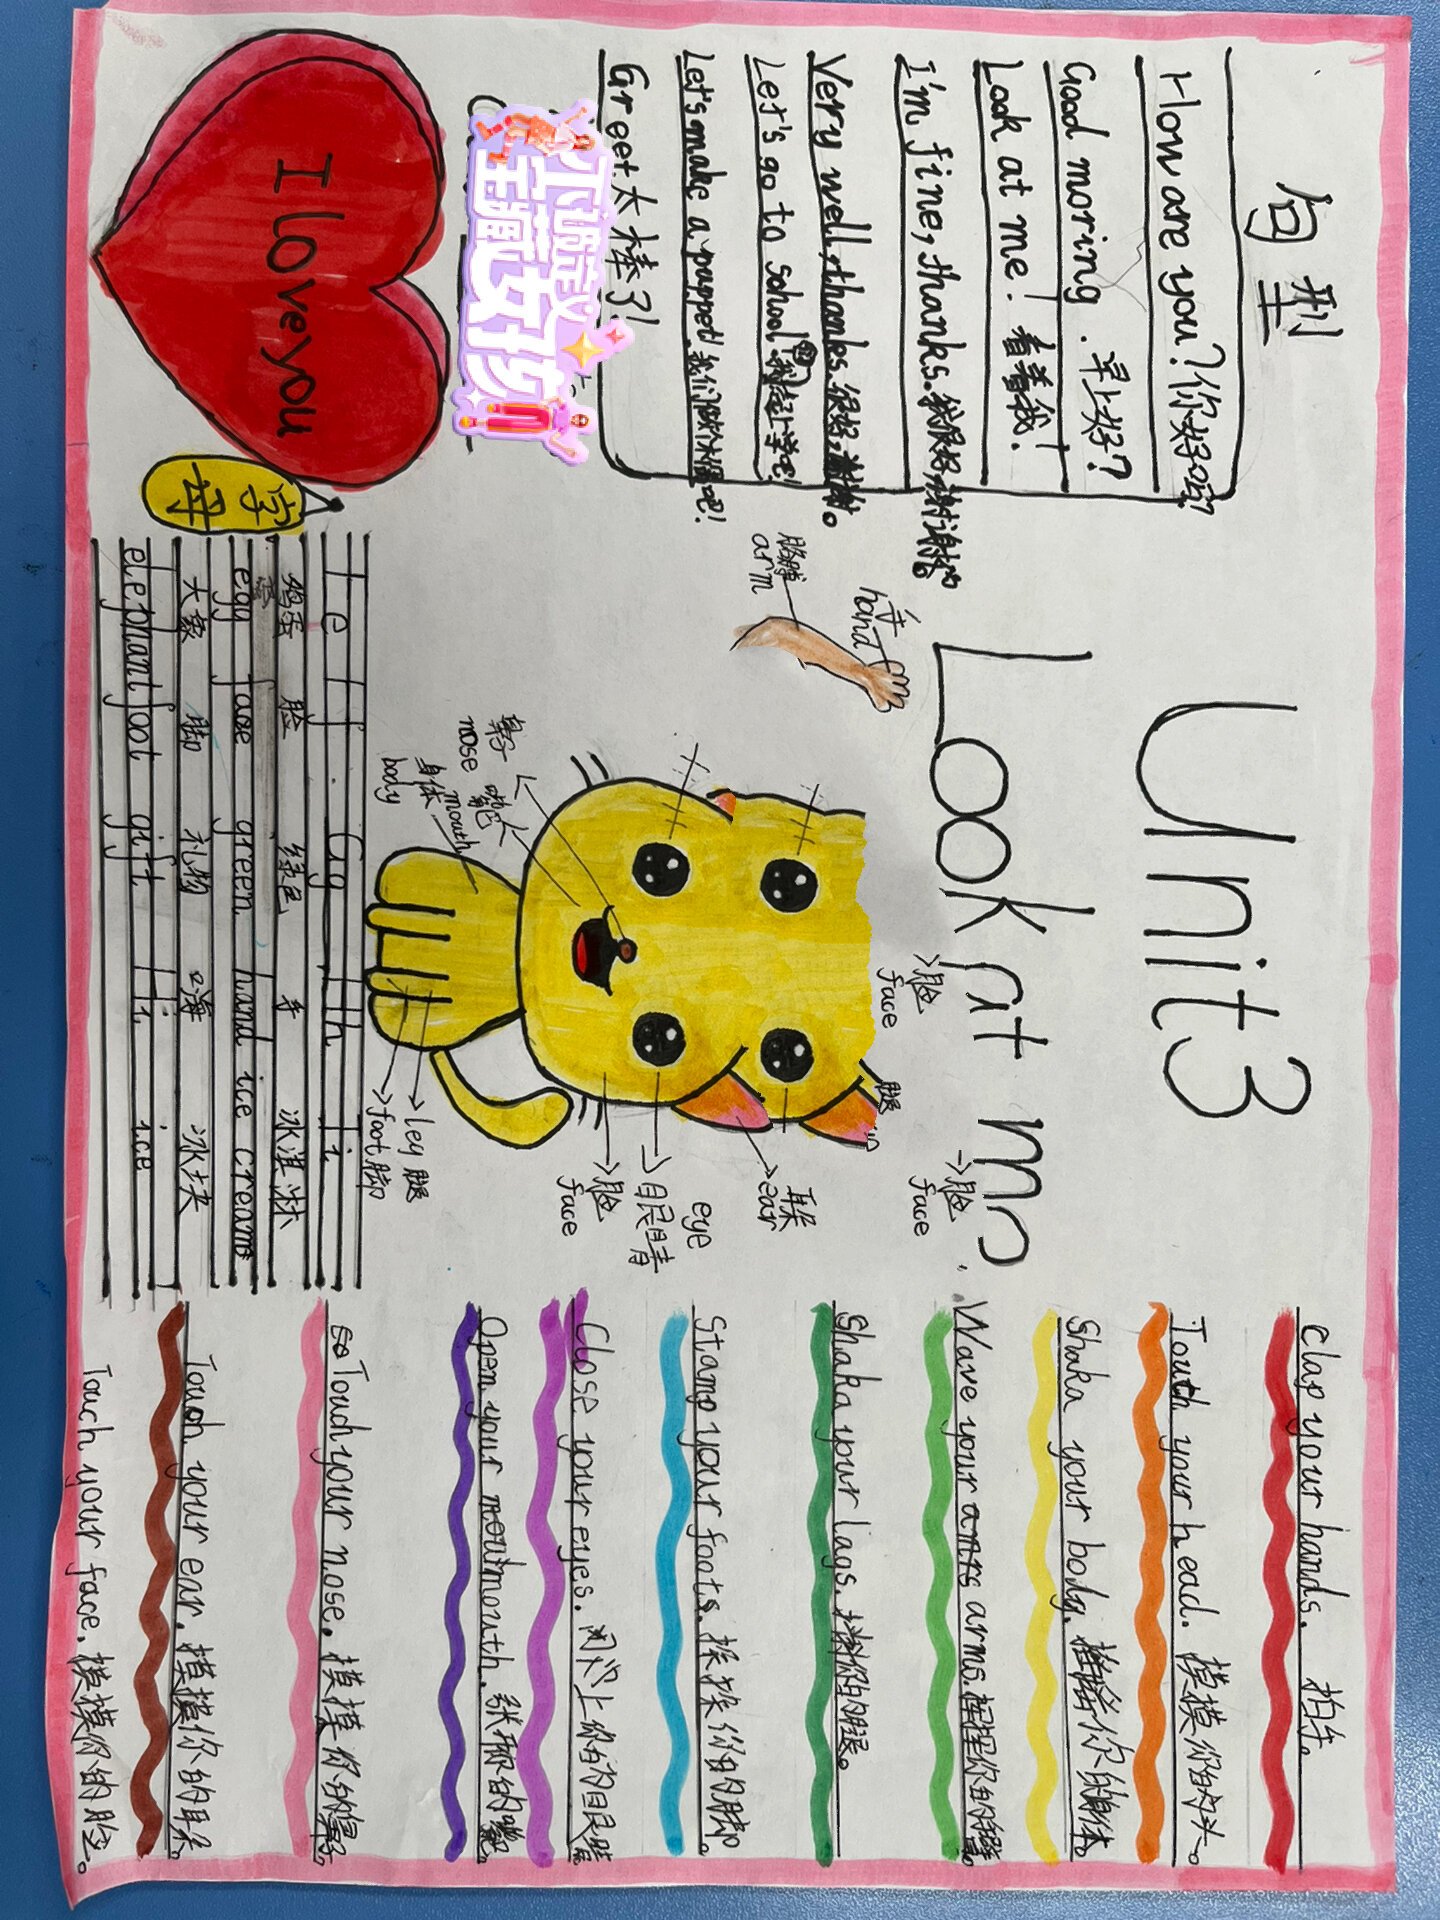 Unit 3
Look at me
句型
How are you? 你好吗?
Good moring. 早上好?
Look at me! 看着我!
I'm fine, thanks. 我很好,谢谢
Very well, thanks. 很好,谢谢。
Let's go to school! 我们一起上学吧!
Let's make a puppet! 我们做个木偶吧!
Greet 太棒了!
不掉或
宝藏女孩
I love you
字母
手
hand
胳膊
arm
鼻子
nose
嘴巴
mouth
身体
body
脸
face
腿
脸
face
耳朵
ear
eye
眼睛
脸
face
leg 腿
foot 脚
e f Gg h i
鸡蛋 脸 绿色 手 冰淇淋
egg face green hand ice cream
大象 脚 礼物 嗨 冰块
elephant foot gift Hi ice
clap your hands. 拍手。
Touch your head. 摸摸你的头。
Shaka your body. 摇摇你的身体。
Wave your arms arms. 挥挥你的胳膊。
Shaka your lags. 摇摇你的腿。
Stamp your foots. 跺跺你的脚。
Close your eyes. 闭上你的目艮睛
Open your mouth. 张开你的嘴巴。
Touch your nose. 摸摸你的鼻子。
Touch your ear. 摸摸你的耳朵。
Touch your face. 摸摸你的脸。